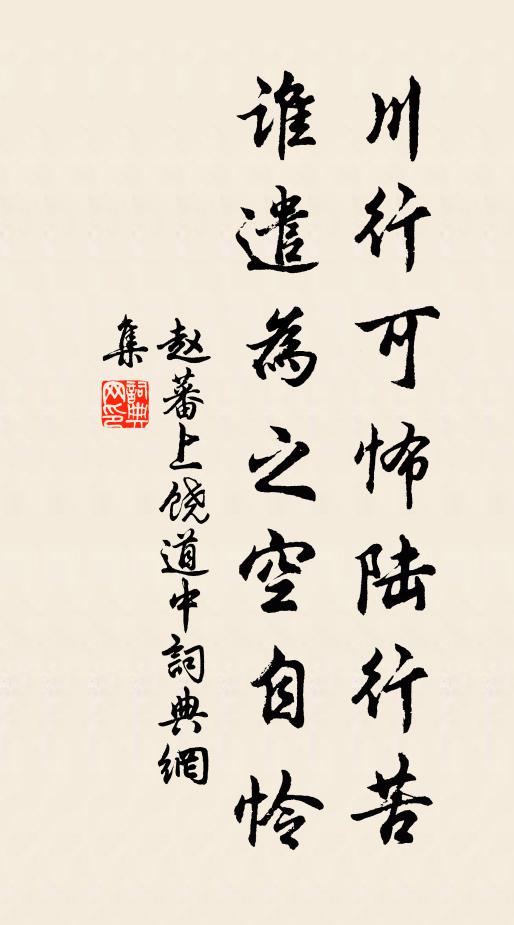 川行可怖陆行苦
谁遣為之空自怜
赵蕃上饶道中詞典網
集
詞典网印